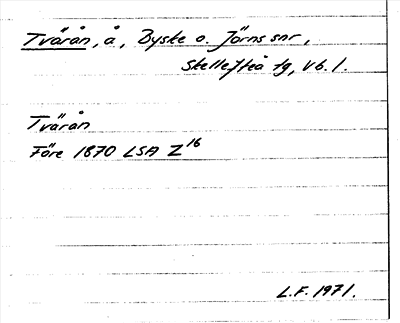 Tvärån, å, Byske o. Jörns snr,
Skellefteå tg, Vb. l.
Tvärån
Före 1870 LSA Z16
L.F. 1971.